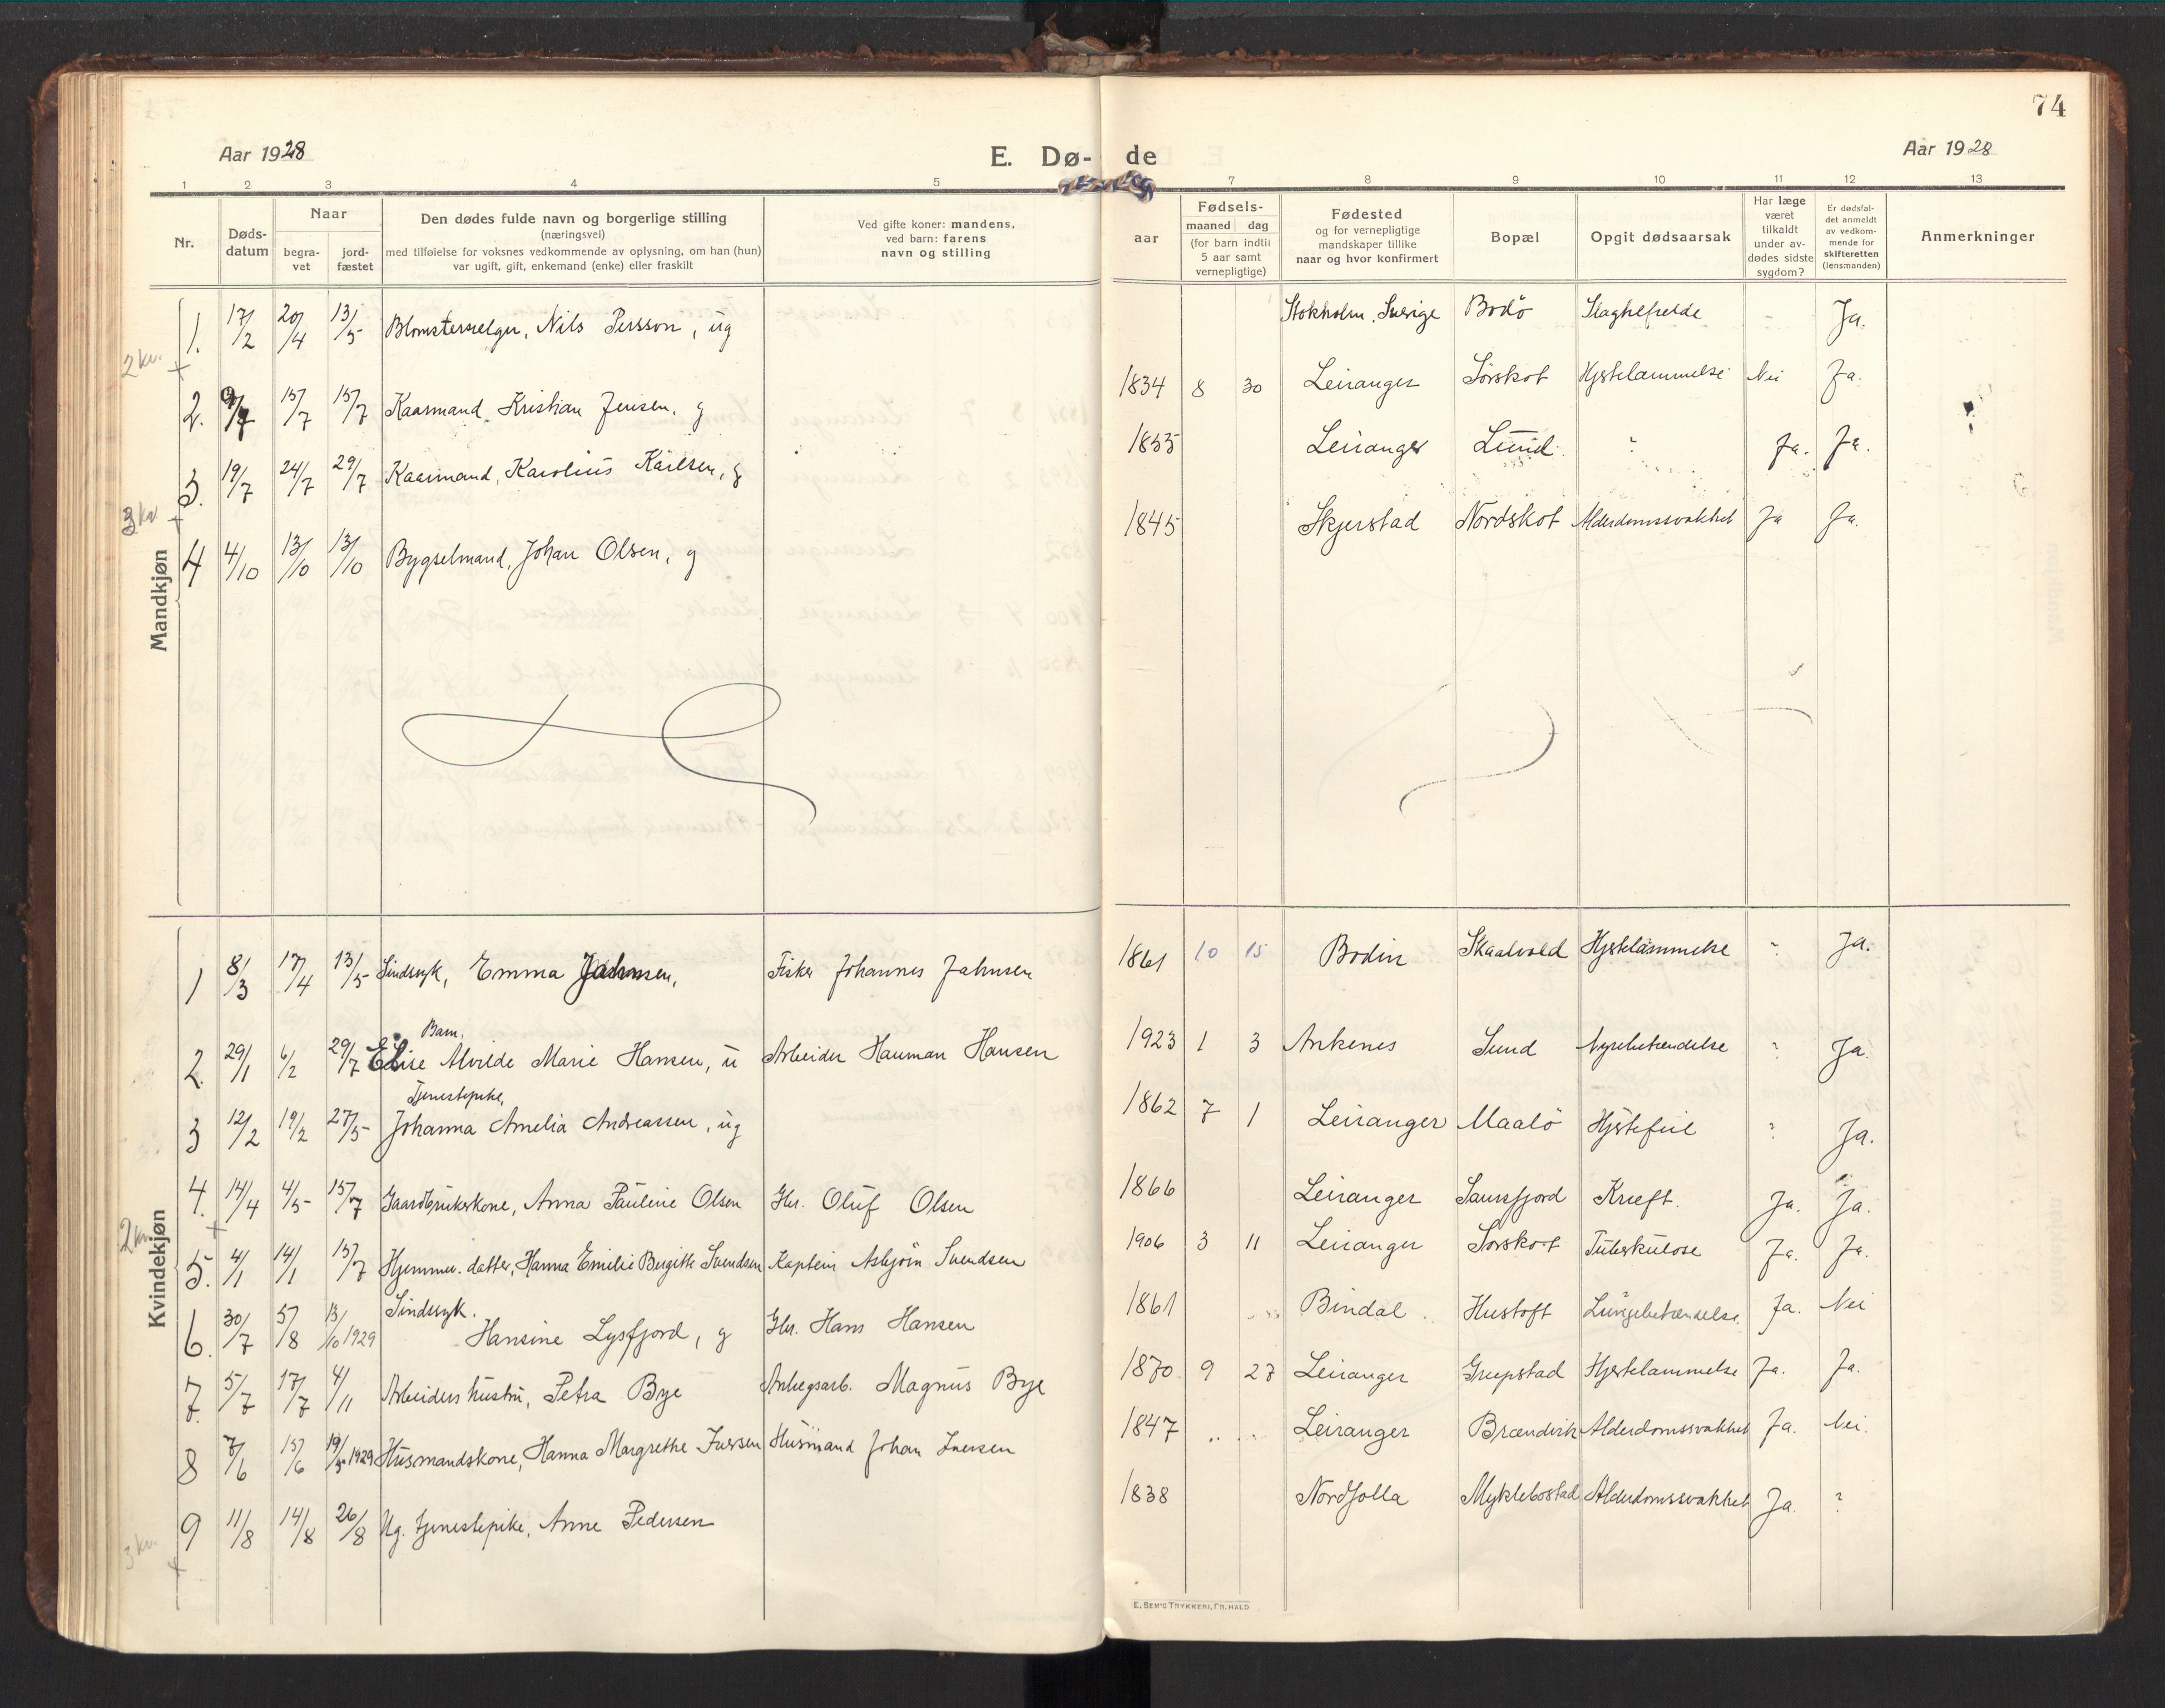 74
Aar 1928
E. Dø-
de
Aar 1928
1 2 3 4 5 7 8 9 10 11 12 13
Nr.
Døds-
datum
Naar
begra-
vet
jord-
fæstet
Den dødes fulde navn og borgerlige stilling
(næringsvei)
med tilføielse for voksnes vedkommende av oplysning, om han (hun)
var ugift, gift, enkemand (enke) eller fraskilt
Ved gifte koner: mandens,
ved barn: farens
navn og stilling
aar
Fødsels-
maaned dag
(for barn indtil
5 aar samt
vernepligtige)
Fødested
og for vernepligtige
mandskaper tillike
naar og hvor konfirmert
Bopæl
Opgit dødsaarsak
Har læge
været
tilkaldt
under av-
dødes sidste
sygdom?
Er dødsfal-
det anmeldt
av vedkom-
mende for
skifteretten
(lensmanden)
Anmerkninger
Mandkjøn
1. 17/2 20/4 13/5 Blomsterselger, Nils Persson, ug Stokholm, Sverige Bodö Slaghelfelde - Ja.
2 kv.
2. 9/7 15/7 15/7 Kaarmand Kristian Jensen, g 1834 8 30 Leiranger Sörskot Hjertelammelse Nei Ja.
3. 19/7 24/7 29/7 Kaarmand, Karolius Karlsen, g 1855 Leiranger Lund " Ja. Ja.
3 kv
4 4/10 13/10 13/10 Bygselmand, Johan Olsen, g 1845 Skjerstad Nordskot Alderdomssvakhet Ja Ja.
Kvindekjøn
1 8/3 17/4 13/5 Sindssyk, Emma Jahnsen, Fisker Johannes Jahnsen 1861 10 15 Bodin Skaalvold Hjertelammelse " Ja.
Barn,
2. 29/1 6/2 29/7 Elise Alvilde Marie Hansen, u Arbeider Hauman Hansen 1923 1 3 Ankenes Sund Nyrebetændelse " Ja.
Tjenestepike,
3 12/2 19/2 27/5 Johanna Amelia Andreassen, ug 1862 7 1 Leiranger Maalö Hjertefeil " Ja.
4. 14/4 4/5 15/7 Gaardbrukerkone, Anna Pauline Olsen Gbr. Oluf Olsen 1866 Leiranger Laursfjord Kræft. Ja. Ja.
2 kv.
5. 4/1 14/1 15/7 Hjemmev. datter, Hanna Emilie Birgitte Svendsen Kaptein Asbjörn Svendsen 1906 3 11 Leiranger Sörskot Tuberkulose Ja. Ja.
Sindssyk.
6. 30/7 5/8 13/10 1929 Hansine Lysfjord, g Gbr. Hans Hansen 1861 Bindal Hustoft Lungebetændelse Ja. Nei
7. 5/7 17/7 4/11 Arbeiders hustru, Petra Bye Anlegsarb. Magnus Bye 1870 9 27 Leiranger Grepstad Hjertelammelse Ja. Ja.
8 7/6 15/6 19/5 1929 Husmandskone, Hanna Margrethe Iversen Husmand Johan Iversen 1847 Leiranger Brændvik Alderdomssvakhet Ja. Nei.
9 11/8 14/8 26/8 Ug. tjenestepike, Anne Pedersen 1838 Nordfolla Myklebostad Alderdomssvakhet Ja. "
3 kv.
E. SEM'S TRYKKERI, FR.HALD